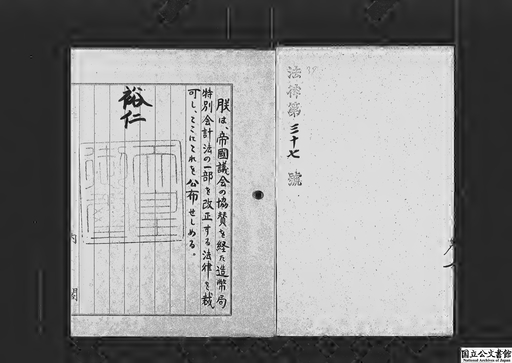 法律第三十七號
朕は、帝國議会の協賛を経た造幣局
特別会計法の一部を改正する法律を裁
可し、ここにこれを公布せしめる。
裕仁
内閣
国立公文書館
National Archives of Japan